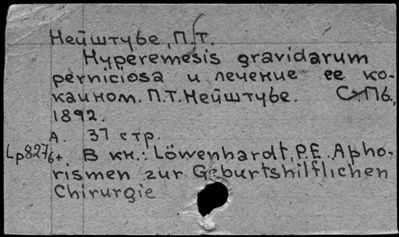 Нейштубе, П.Т.
Hyperemesis gravidarum
perniciosa и лечение ее ко-
каином. П.Т. Нейштубе. С.-Пб.,
1892.
А. 37 стр.
Lp8276+. В кн.: Löwenhardt, P.E. Apho-
rismen zur Geburtshilflichen
Chirurgie